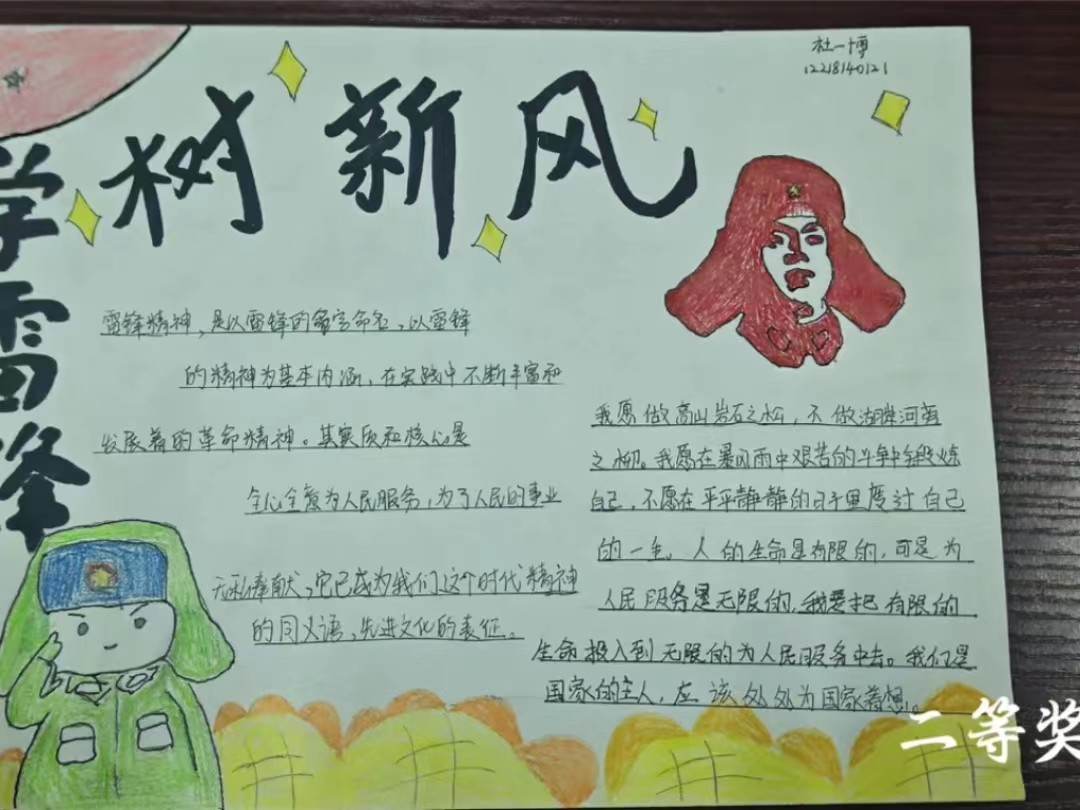 杜一博
12218140121
树新风
学雷锋
雷锋精神，是以雷锋的名字命名，以雷锋
的精神为基本内涵，在实践中不断丰富和
发展着的革命精神。其实质和核心是
全心全意为人民服务，为了人民的事业
无私奉献，它已成为我们这个时代精神
的同义语、先进文化的表征。
我愿做高山岩石之松，不做湖畔河旁
之柳。我愿在暴风雨中艰苦的斗争中锻炼
自己，不愿在平平静静的日子里度过自己
的一生。人的生命是有限的，可是为
人民服务是无限的，我要把有限的
生命投入到无限的为人民服务中去。我们是
国家的主人，应该处处为国家着想。
二等奖